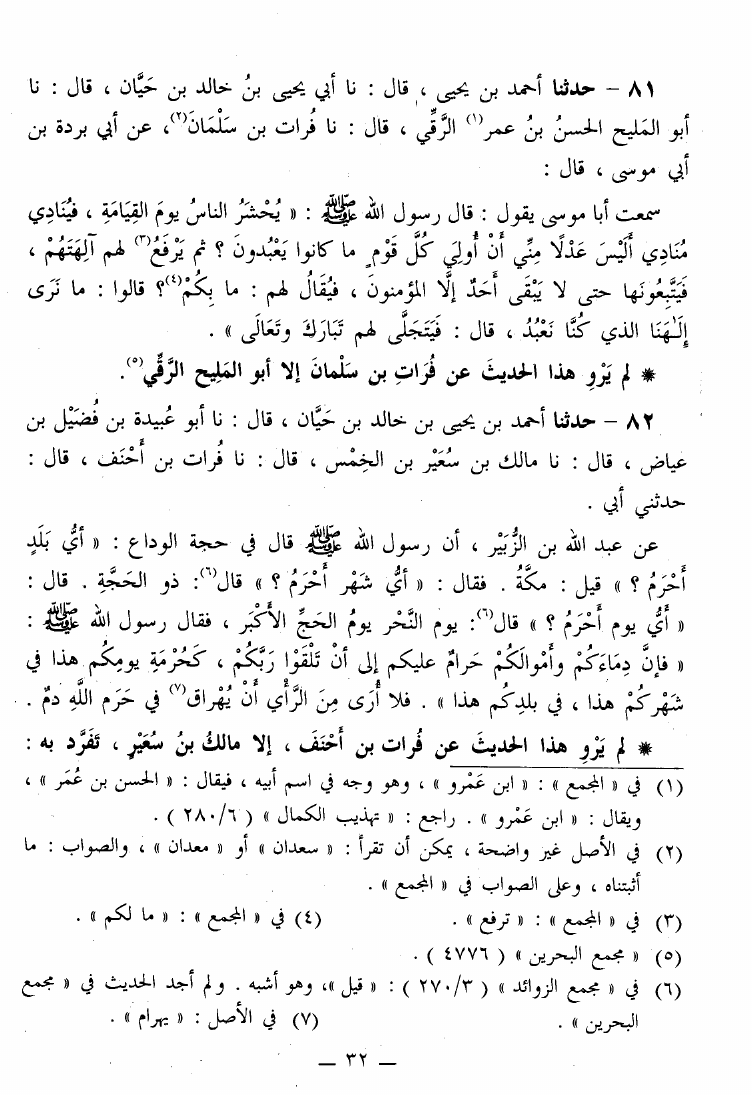 ٨١ – حدثنا أحمد بن يحيى ، قال : نا أبي يحيى بنُ خالد بن حَيَّان ، قال : نا
أبو المَليح الحسنُ بنُ عمر(١) الرَّقِّي ، قال : نا فُرات بن سَلْمَانَ(٢)، عن أبي بردة بن
أبي موسى ، قال :
سمعت أبا موسى يقول : قال رسول الله ﷺ : « يُحْشَرُ الناسُ يومَ القِيَامَةِ ، فيُنَادِي
مُنَادِي أَلَيْسَ عَدْلًا مِنِّي أَنْ أُولِي كُلَّ قَوْمٍ ما كانوا يَعْبُدونَ ؟ ثم يَرْفَعُ(٣) لهم آلِهَتَهُمْ ،
فَيَتَّبِعُونَها حتى لا يَبْقَى أَحَدٌ إلَّا المؤمنونَ ، فيُقَالُ لهم : ما بِكُمْ(٤)؟ قالوا : ما نَرَى
إِلَـٰهَنَا الذي كُنَّا نَعْبُدُ ، قال : فَيَتَجَلَّى لهم تَبَارَكَ وتَعَالَى » .
* لم يَرْوِ هذا الحديثَ عن فُرَاتِ بن سَلْمانَ إلا أبو المَليح الرَّقِّي(٥).
٨٢ – حدثنا أحمد بن يحيى بن خالد بن حَيَّان ، قال : نا أبو عُبيدة بن فُضَيْل بن
عياض ، قال : نا مالك بن سُعَيْر بن الخِمْس ، قال : نا فُرات بن أَحْنَف ، قال :
حدثني أبي .
عن عبد الله بن الزُّبَيْر ، أن رسول الله ﷺ قال في حجة الوداع : « أيُّ بَلَدٍ
أَحْرَمُ ؟ » قيل : مكَّةُ . فقال : « أيُّ شَهْر أَحْرَمُ ؟ » قال(٦): ذو الحَجَّةِ . قال :
« أَيُّ يوم أَحْرَمُ ؟ » قال(٦): يوم النَّحْر يومُ الحَجِّ الأَكْبَر ، فقال رسول الله ﷺ :
« فإنَّ دِمَاءَكُمْ وأَمْوالَكُمْ حَرامٌ عليكم إلى أنْ تَلْقَوْا رَبَّكُمْ ، كَحُرْمَةِ يومِكُم هذا في
شَهْرِكُمْ هذا ، في بلدِكُم هذا » . فلا أَرَى مِنَ الرَّأْي أَنْ يُهْراق(٧) في حَرَم اللَّهِ دمٌ .
* لم يَرْوِ هذا الحديثَ عن فُرات بن أَحْنَفَ ، إلا مالكُ بنُ سُعَيْرٍ ، تَفَرَّد به :
(١) في « المجمع » : « ابن عَمْرو » ، وهو وجه في اسم أبيه ، فيقال : « الحسن بن عُمَر » ،
ويقال : « ابن عَمْرو » . راجع : « تهذيب الكمال » ( ٦/ ٢٨٠ ) .
(٢) في الأصل غير واضحة ، يمكن أن تقرأ : « سعدان » أو « معدان » ، والصواب : ما
أثبتناه ، وعلى الصواب في « المجمع » .
(٣) في « المجمع » : « ترفع » . (٤) في « المجمع » : « ما لكم » .
(٥) « مجمع البحرين » ( ٤٧٧٦ ) .
(٦) في « مجمع الزوائد » ( ٣/ ٢٧٠ ) : « قيل »، وهو أشبه . ولم أجد الحديث في « مجمع
البحرين » . (٧) في الأصل : « يهرام » .
— ٣٢ —